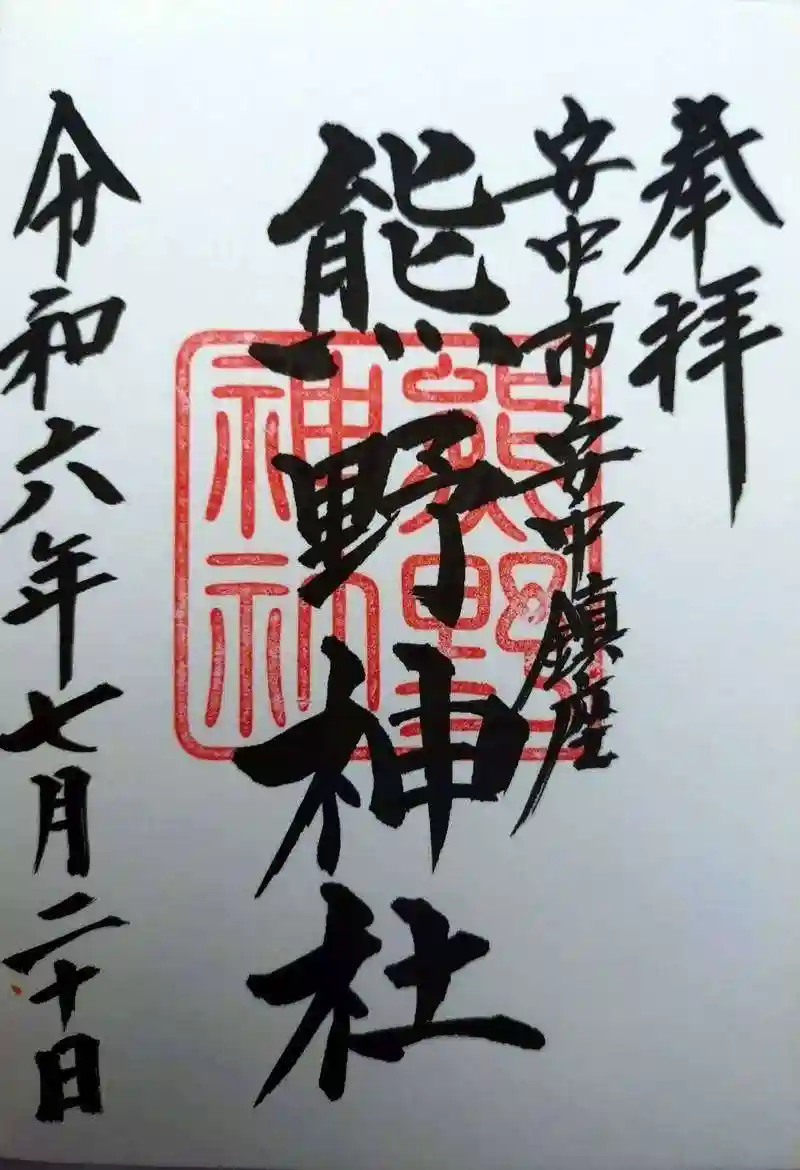 奉拝
安中市安中鎮座
熊野神社
熊野
神社
令和六年七月二十日